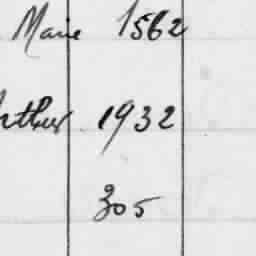 Marie 1562
Arthur 1932
305